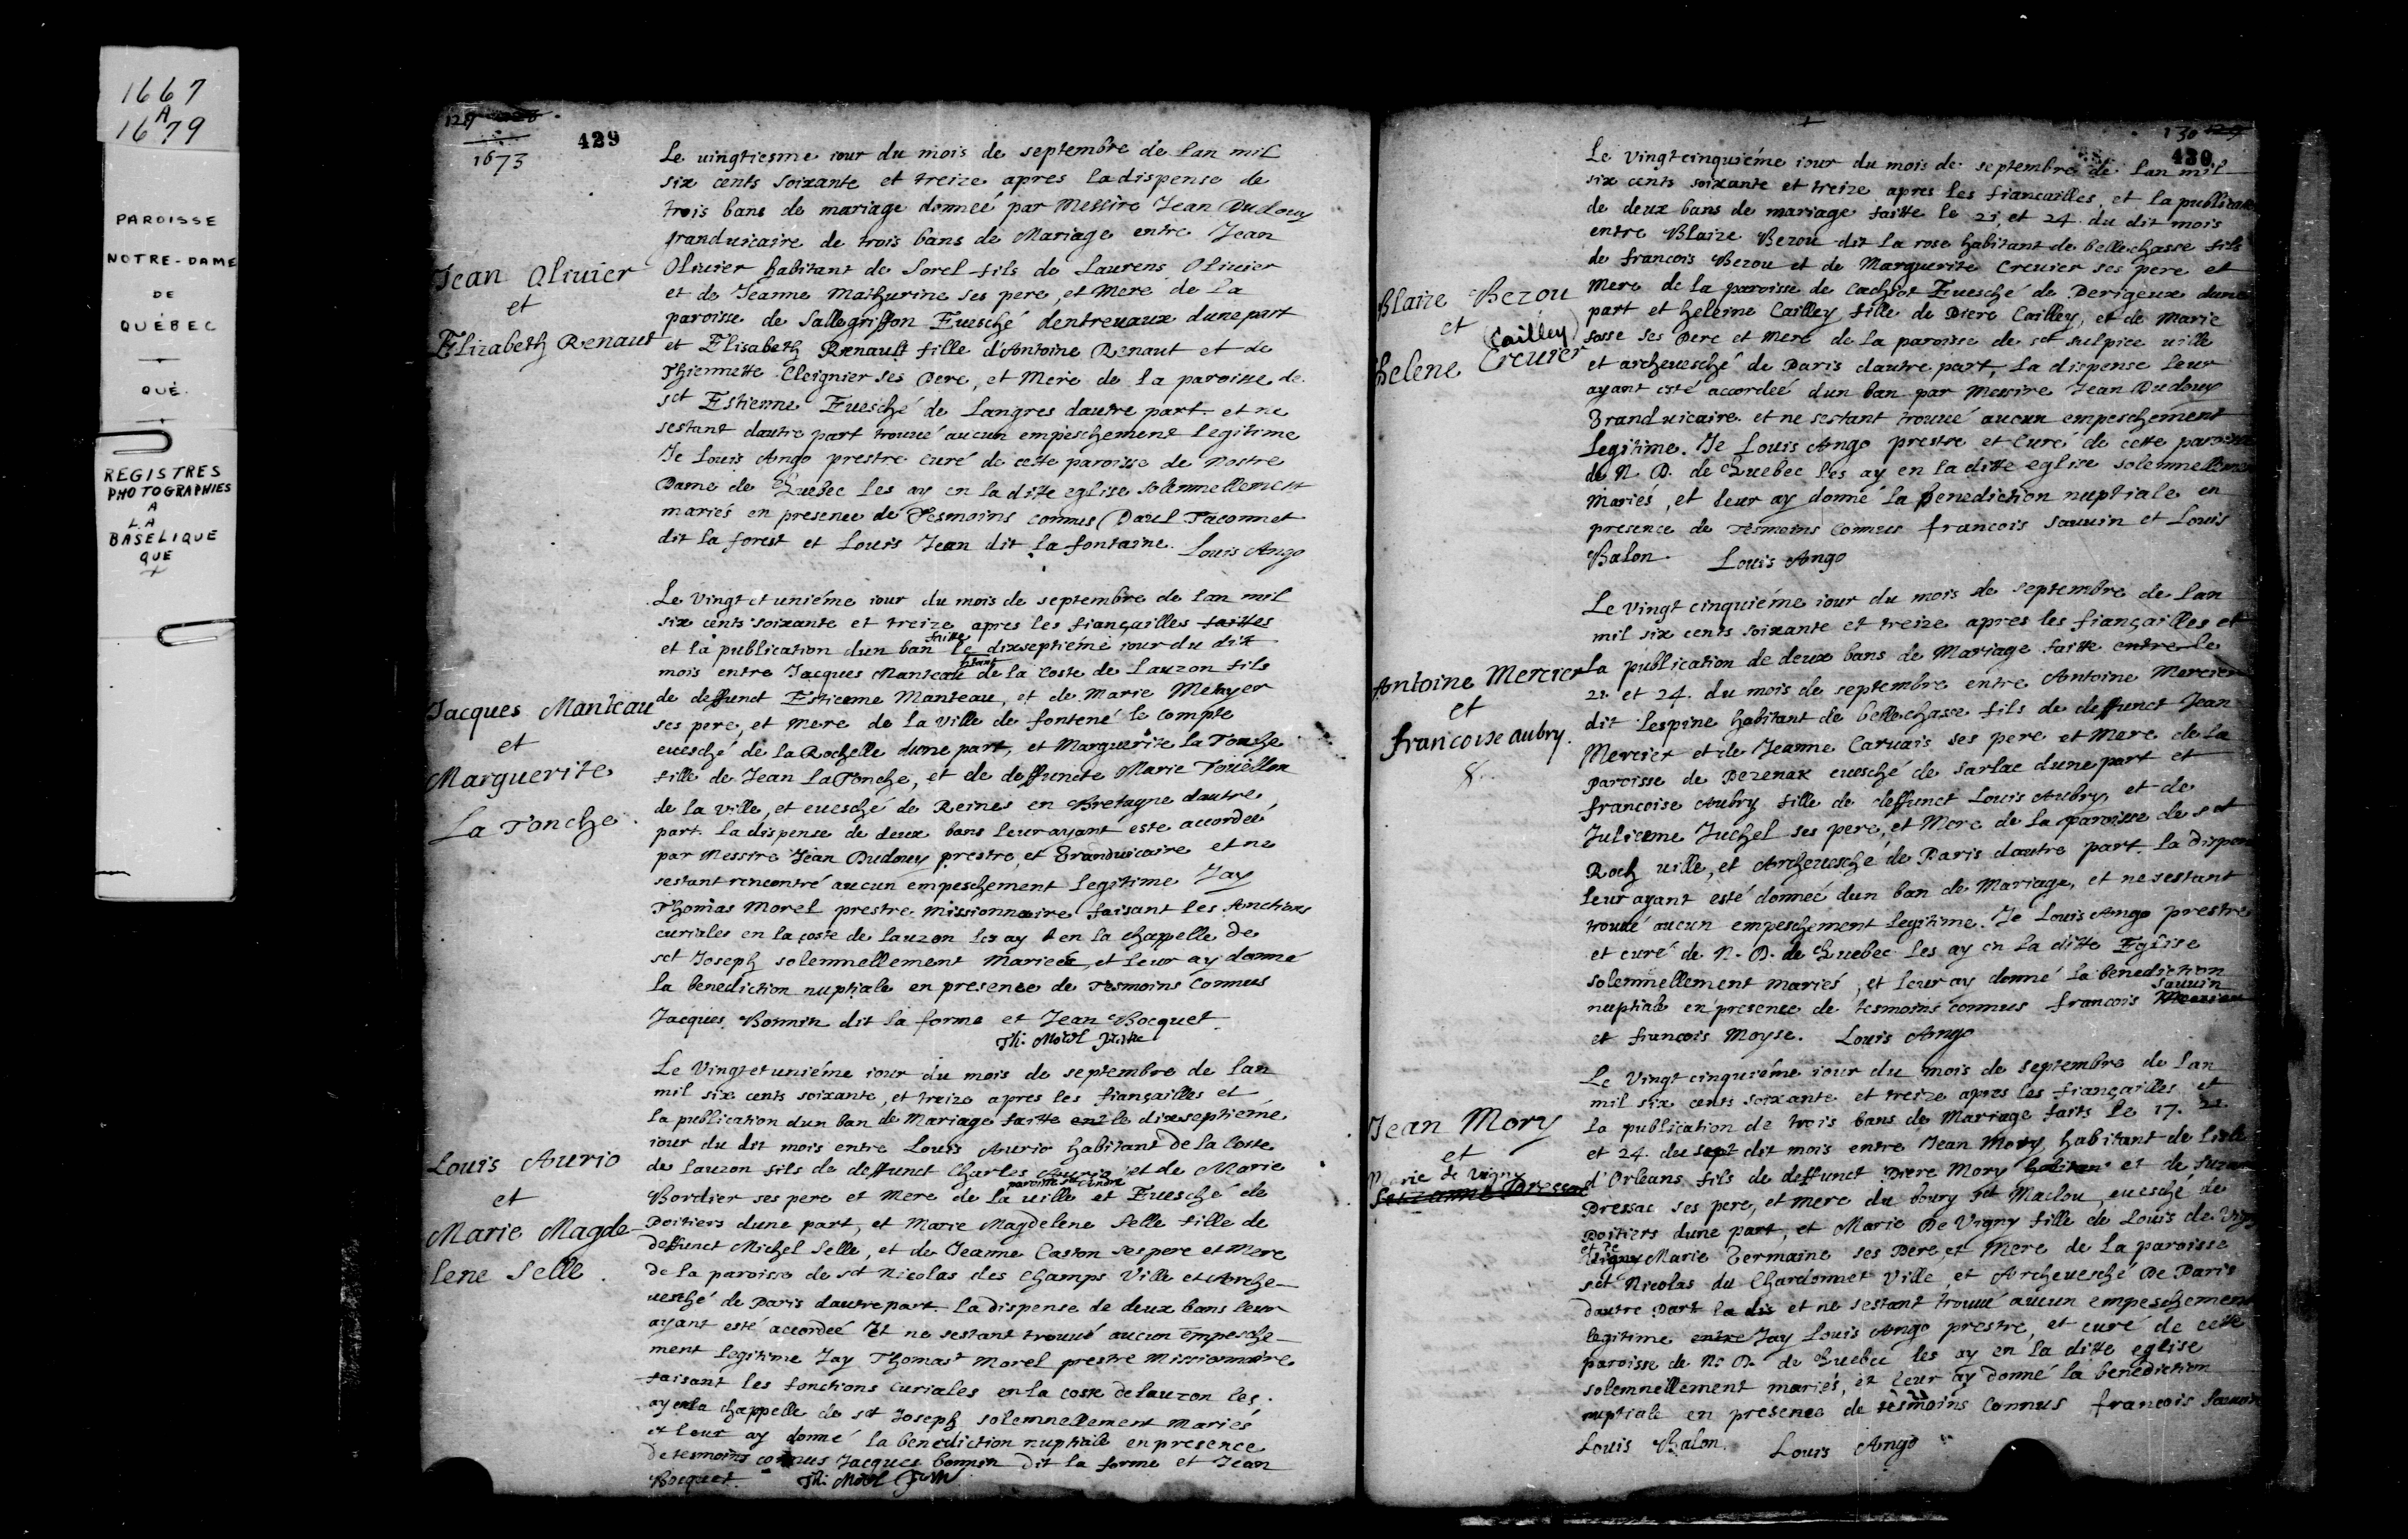 1667
A
1679
PAROISSE
NOTRE-DAME
DE
QUÉBEC
QUÉ.
REGISTRES
PHOTOGRAPHIES
A
LA
BASELIQUE
QUE
129 128
429
1673
Le uingtiesme iour du mois de septembre de lan mil
six cents soixante et treize apres ladispense de
trois bans de mariage donneé par Messire Jean Dudouy
granduicaire de trois bans de Mariage entre Jean
Jean Oliuier
et
Elizabeth Renaut
Oliuier habitant de Sorel fils de Laurens Oliuier
et de Jeanne Mathurine ses pere, et Mere de la
paroisse de Sallegriffon Euesché dentreuaux dunepart
et Elisabeth Renault fille d'Antoine Renaut et de
Thiennette Cleignier ses Pere, et Mere de la paroisse de
sct Estienne Euesché de Langres dautre part et ne
sestant dautre part trouué aucun empeschement legitime
Je Louis Ango prestre curé de cette paroisse de Nostre
Dame de Quebec les ay en la ditte eglise solemnellement
mariés en presence de Tesmoins connus Paul Taconnet
dit la forest et Louis Jean dit la fontaine. Louis Ango
Le Vingt et uniéme iour du mois de septembre de lan mil
six cents soixante et treize apres les fiançailles faittes
et la publication dun ban faitte le dixseptiéme iour du dit
mois entre Jacques Manteau hitant de la Coste de Lauzon fils
Jacques Manteau
et
Marguerite
La Tonche.
de deffunct Estienne Manteau, et de Marie Metayer
ses pere, et Mere de la Ville de fontené le compte
euesché de la Rochelle dune part, et Marguerite la Tonche
fille de Jean La Tonche, et de deffuncte Marie
de la Ville, et euesché de Reines en Bretagne dautre
part. la dispense de deux bans leur ayant este accordeé
par Messire Jean Dudouy prestre, et Granduicaire et ne
sestant rencontré aucun empeschement legitime Jay
Thomas Morel prestre missionnaire faisant les fonctions
curiales en la coste de lauzon les ay en la chappelle de
sct Joseph solemnellement Marieés, et leur ay donné
la benediction nuptiale en presence de Tesmoins connus
Jacques Bonnin dit la forme et Jean Bocquet.
Th. Morel prestre
Le Vingt et uniéme iour du mois de septembre de lan
mil six cents soixante, et treize apres les fiançailles et
la publication dun ban de Mariage faitte ent le dixseptiéme
iour du dit mois entre Louis Aurio habitant de la Coste
Louis Aurio
et
Marie Magde
lene Selle.
de Lauzon fils de deffunct Charles Aurio et de Marie
Bordier ses pere et Mere de la uille et Euesché de
Poitiers dune part, et Marie Magdelene Selle fille de
Deffunct Michel Selle, et de Jeanne Caston ses pere et Mere
de la paroisse de sct Nicolas des Champs Ville et Arche-
uesché de Paris dautrepart. la dispense de deux bans leur
ayant esté accordeé Et ne sestant trouué aucun empesche-
ment legitime Jay Thomas Morel prestre Missionnaire
faisant les fonctions curiales en la coste de lauzon les
ay en la chappelle de sct Joseph solemnellement Mariés
et leur ay donné la benediction nuptiale en presence
de tesmoins connus Jacques bonnin dit la forme et Jean
Bocquet. Th. Morel
130 129
430
Le Vingt cinquiéme iour du mois de septembre de lan mil
six cents soixante et treize apres les fiancailles, et la
de deux bans de mariage faitte le 21, et 24. du dit mois
entre Blaize Bezou dit la rose habitant de bellechasse fils
de francois Bezou et de Marguerite Creuier ses pere et
Blaize Bezou
et
(Cailley)
helene Creuier
Mere de la paroisse de Euesché de Perigeux dune
part et heleine Cailley fille de Piere Cailley, et de Marie
ses Pere et Mere de la paroisse de sct sulpice uille
et archeuesché de Paris dautre part la dispense leur
ayant esté accordeé dun ban par Messire Jean Dudouy
Granduicaire et ne sestant trouué aucun empeschement
legitime. Je Louis Ango prestre et Curé de cette paroisse
de N. D. de Quebec les ay en la ditte eglise
Mariés, et leur ay donné la benediction nuptiale en
presence de tesmoins connus francois Sauuin et Louis
Balon. Louis Ango
Le Vingt cinquiéme iour du mois de septembre de lan
mil six cents soixante et treize apres les fiançailles et
Antoine Mercier
et
francoise aubry.
la publication de deux bans de Mariage faitte entre le
21. et 24. du mois de septembre entre Antoine Mercier
dit lespine habitant de bellechasse fils de deffunct Jean
Mercier et de Jeanne Caruais ses pere et Mere de la
paroisse de Pezenak euesché de Sarlac dune part et
francoise Aubry fille de deffunct Louis Aubry, et de
Julienne Juchel ses pere, et Mere de la paroisse de sct
Roch uille, et Archeuesché de Paris dautre part. la
leur ayant esté donneé dun ban de Mariage, et ne sestant
trouué aucun empeschement legitime. Je Louis Ango prestre
et curé de N. D. de Quebec les ay en la ditte Eglise
solemnellement mariés, et leur ay donné la benediction
nuptiale en presence de tesmoins connus francois sauuin
et francois Moyse. Louis Ango
Le Vingt cinquiéme iour du mois de septembre de lan
mil six cents soixante et treize apres les fiançailles et
Jean Mory
et
Marie de Vigny
Suzanne Dressac
la publication de trois bans de Mariage faits le 17. 21.
et 24. du sept dit mois entre Jean Mory habitant de Lisle
d'Orleans fils de deffunct Piere Mory habitan et de
Dressac ses pere, et mere du boury sct Maclou euesché de
Poitiers dune part, et Marie De Vigny fille de Louis de
et de Vigny Marie Germaine ses Pere, et Mere de la paroisse
sct Nicolas du Chardonnet Ville et Archeuesché De Paris
dautre part la dis et ne sestant trouué aucun empeschement
legitime entre Jay Louis Ango prestre, et curé de cette
paroisse de Ne D. de Quebec les ay en la ditte eglise
solemnellement mariés, et leur ay donné la benediction
nuptiale en presence de tesmoins connus francois
Louis Balon. Louis Ango